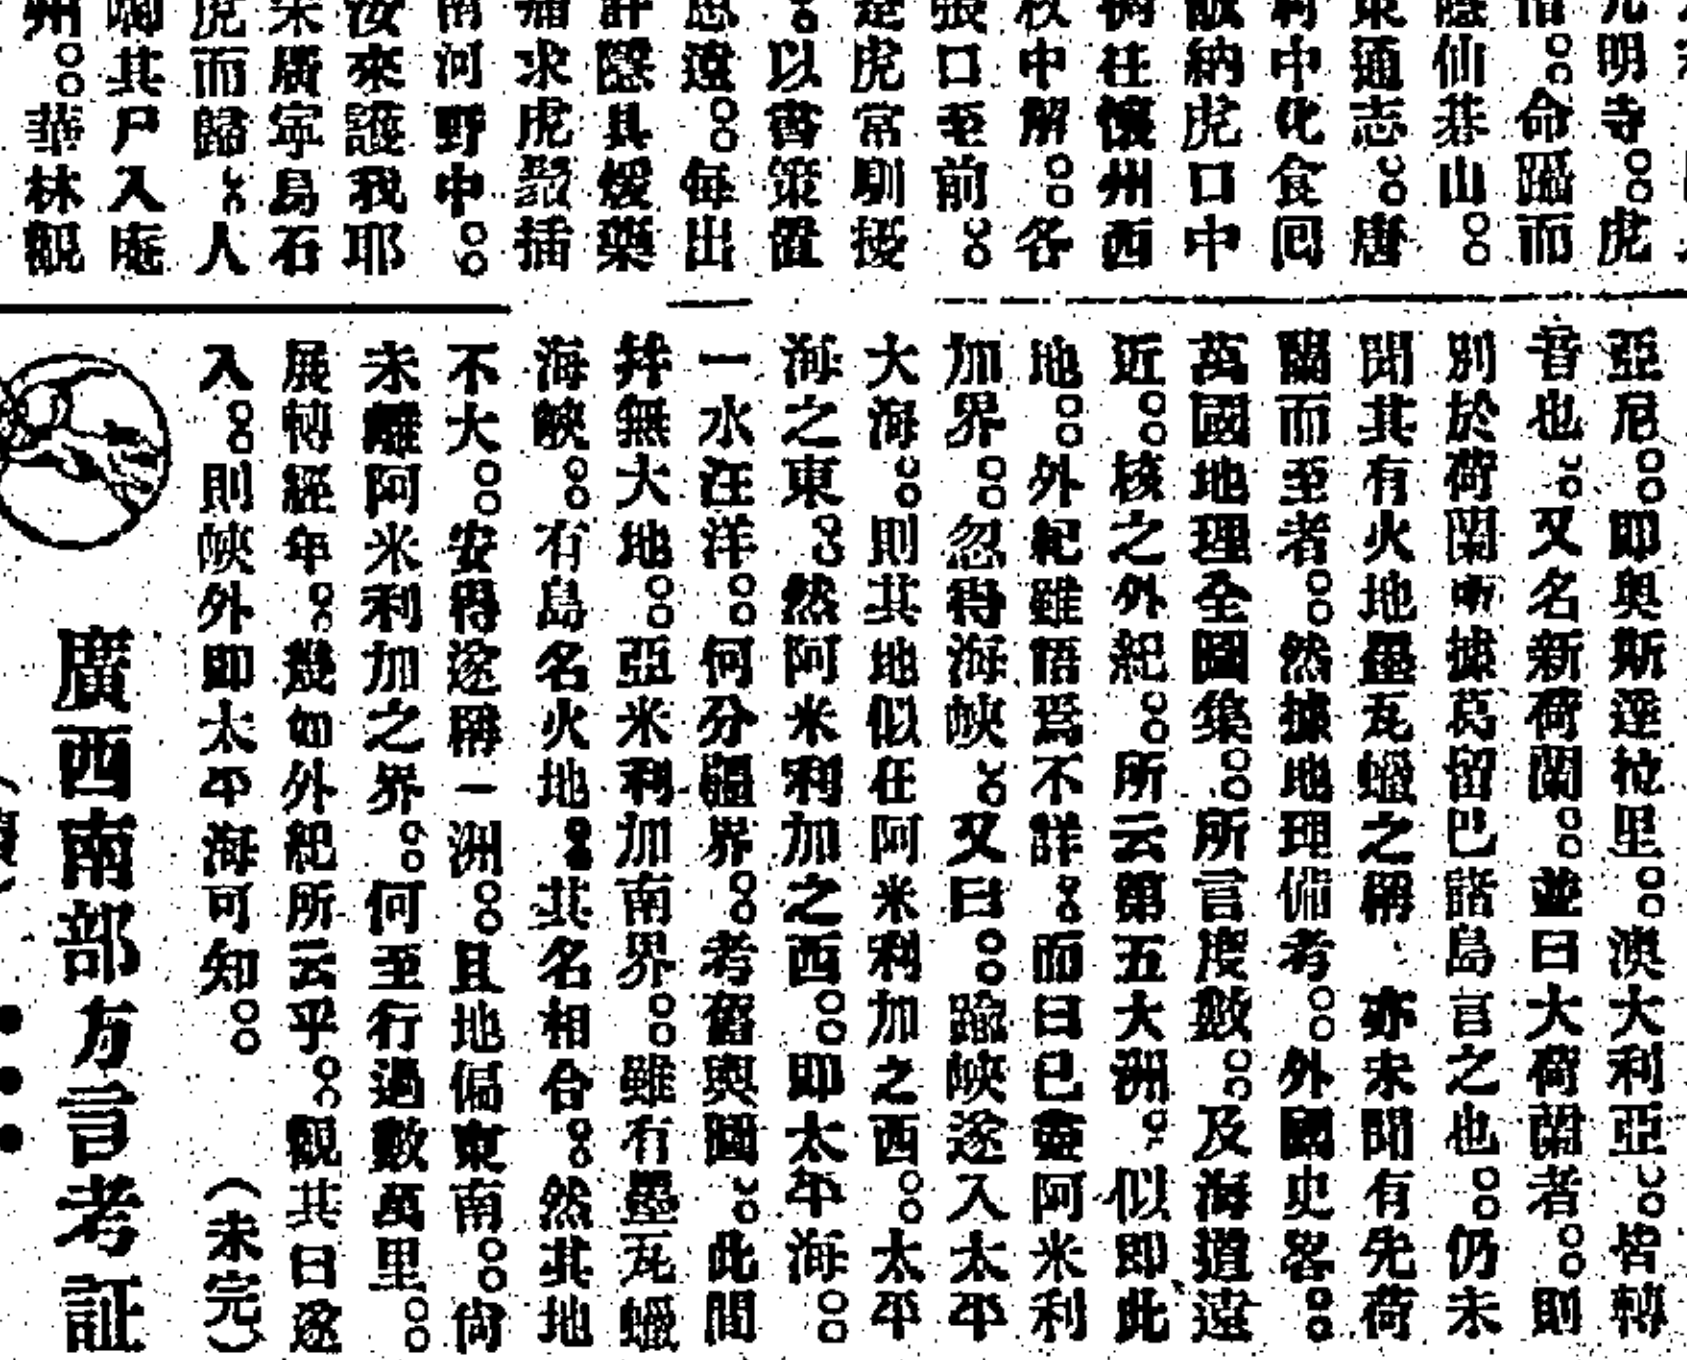 明寺。。虎
。。命隨而
仙碁山。。
東通志。。唐
中化食囘
納虎口中
往懷州西
中解。。各
張口至前。。
虎常馴擾
。。以書策置
遠。。每出
隱具煖藥
求虎聚插
河野中。。
汝來護我耶
未廣寧島石
虎而歸。。人
其尸入庵
州。。華林觀
亞尼。。卽奥斯達拉里。。澳大利亞。。皆轉
音也。。又名新荷蘭。。並曰大荷蘭者。。則
別於荷蘭所據葛留巴諸島言之也。。仍未
聞其有火地墨瓦蠟之稱 亦未聞有先荷
蘭而至者。。然據地理備考。。外國史畧。。
萬國地理全圖集。。所言度數。。及海道遠
近。。核之外紀。。所云第五大洲。。似卽此
地。。外紀雖語焉不詳。。而曰已盡阿米利
加界。。忽得海峽。。又曰。。踰峽遂入太平
大海。。則其地似在阿米利加之西。。太平
海之東。。然阿米利加之西。。卽太平海。。
一水汪洋。。何分疆界。。考舊輿圖。。此間
幷無大地。。亞米利加南界。。雖有墨瓦蠟
海峽。。有島名火地。。其名相合。。然其地
不大。。安得遂稱一洲。。且地偏東南。。尙
未離阿米利加之界。。何至行過數萬里。。
展轉經年。。幾如外紀所云乎。。觀其曰遂
入。。則峽外卽太平海可知。。 (未完)
廣西南部方言考証